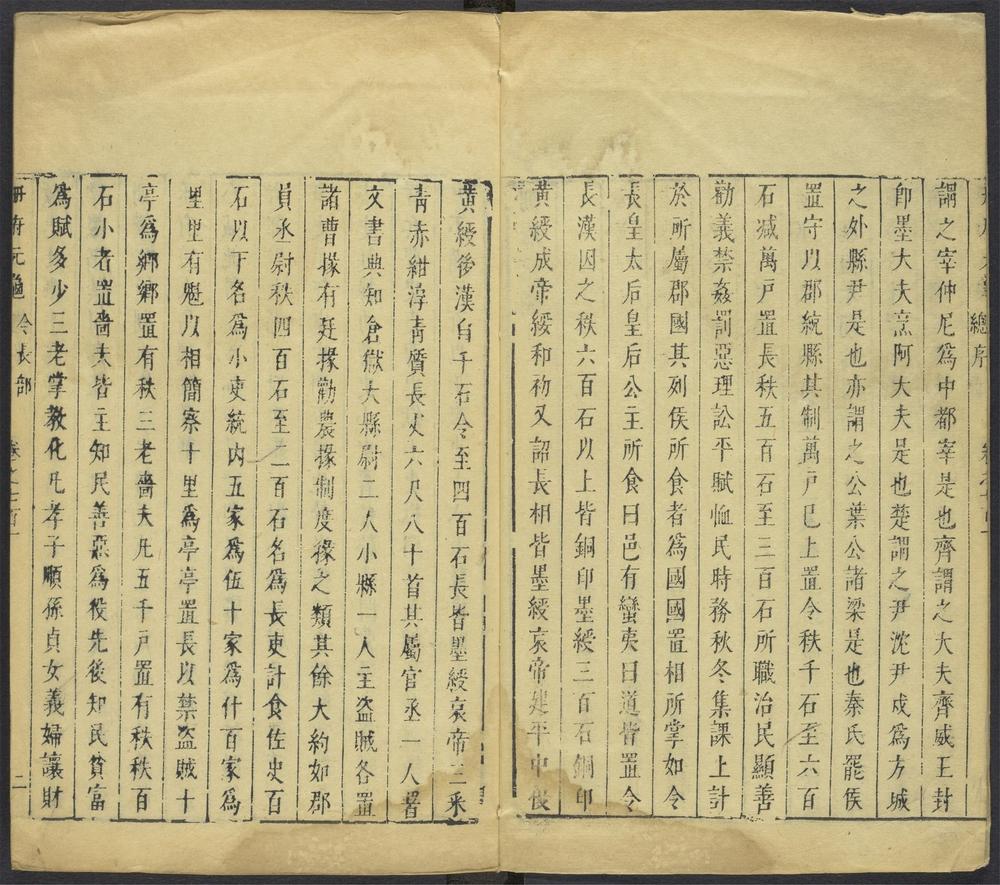 總序
謂之宰仲尼爲中都宰是也齊謂之大夫齊威王封
卽墨大夫烹阿大夫是也楚謂之尹沈尹戍爲方城
之外縣尹是也亦謂之公葉公諸梁是也秦氏罷侯
置守以郡統縣其制萬戸已上置令秩千石至六百
石減萬戸置長秩五百石至三百石所職治民顯善
勸義禁姦罰惡理訟平賦恤民時務秋冬集課上計
於所屬郡國其列侯所食者爲國國置相所掌如令
長皇太后皇后公主所食曰邑有蠻夷曰道皆置令
長漢因之秩六百石以上皆銅印墨綬三百石銅印
黃綬成帝綏和初又詔長相皆墨綬哀帝建平中復
黃綬後漢自千石令至四百石長皆墨綬哀帝三采
靑赤紺淳靑質長丈六尺八十首其屬官丞一人署
文書典知倉獄大縣尉二人小縣一人主盜賊各置
諸曹掾有廷掾勸農掾制度掾之類其餘大約如郡
員丞尉秩四百石至二百石名爲長吏計食佐史百
石以下名爲小吏統内五家爲伍十家爲什百家爲
里里有魁以相簡察十里爲亭亭置長以禁盜賊十
亭爲鄕鄕置有秩三老嗇夫凡五千戸置有秩秩百
石小者置嗇夫皆主知民善惡爲役先後知民貧富
爲賦多少三老掌教化凡孝子順孫貞女義婦讓財
冊府元龜 令長部 卷之七百一 二